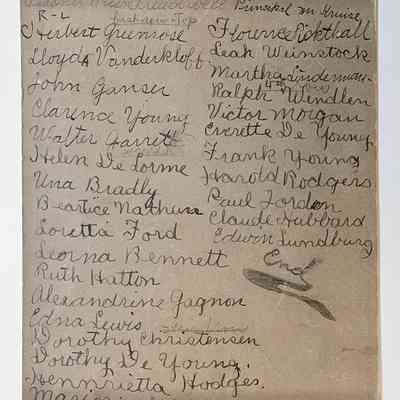 R-L
first down - Top
Herbert Greenrose
Lloyd Vanderkloff
John Ganser
Clarence Young
Walter Garrett
Helen De Lorme
Una Bradly
Beartice Nathura
Loretta Ford
Leorna Bennett
Ruth Hatton
Alexandrine Gagnon
Edna Lewis
Dorothy Christensen
Dorothy De Young.
Hennrietta Hodges.
Florence Rickthall
Leah Weinstock
Martha Lindeman
Ralph Windlen
Victor Morgan
Everette De Young
Frank Young
Harold Rodgers
Paul Fordon
Claude Hubbard
Edwin Lundburg
End